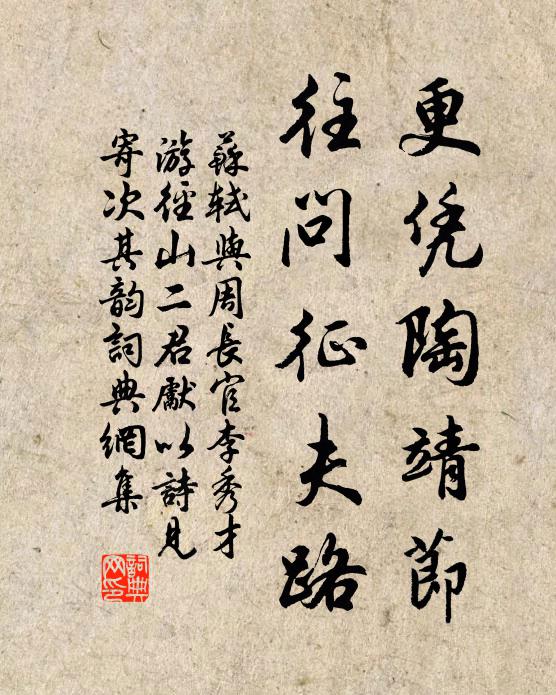 更凭陶靖節
往問征夫路
蘇軾與周長官李秀才
游徑山二君獻以詩見
寄次其韵詞典網集
詞典
网印